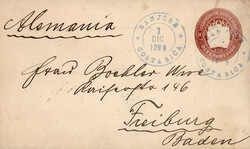 Alemania
SAN JOSE
1
DIC
COSTA RICA
COSTA RICA
Frau Boehler Wwe
Kaiserstr 146
Freiburg
Baden